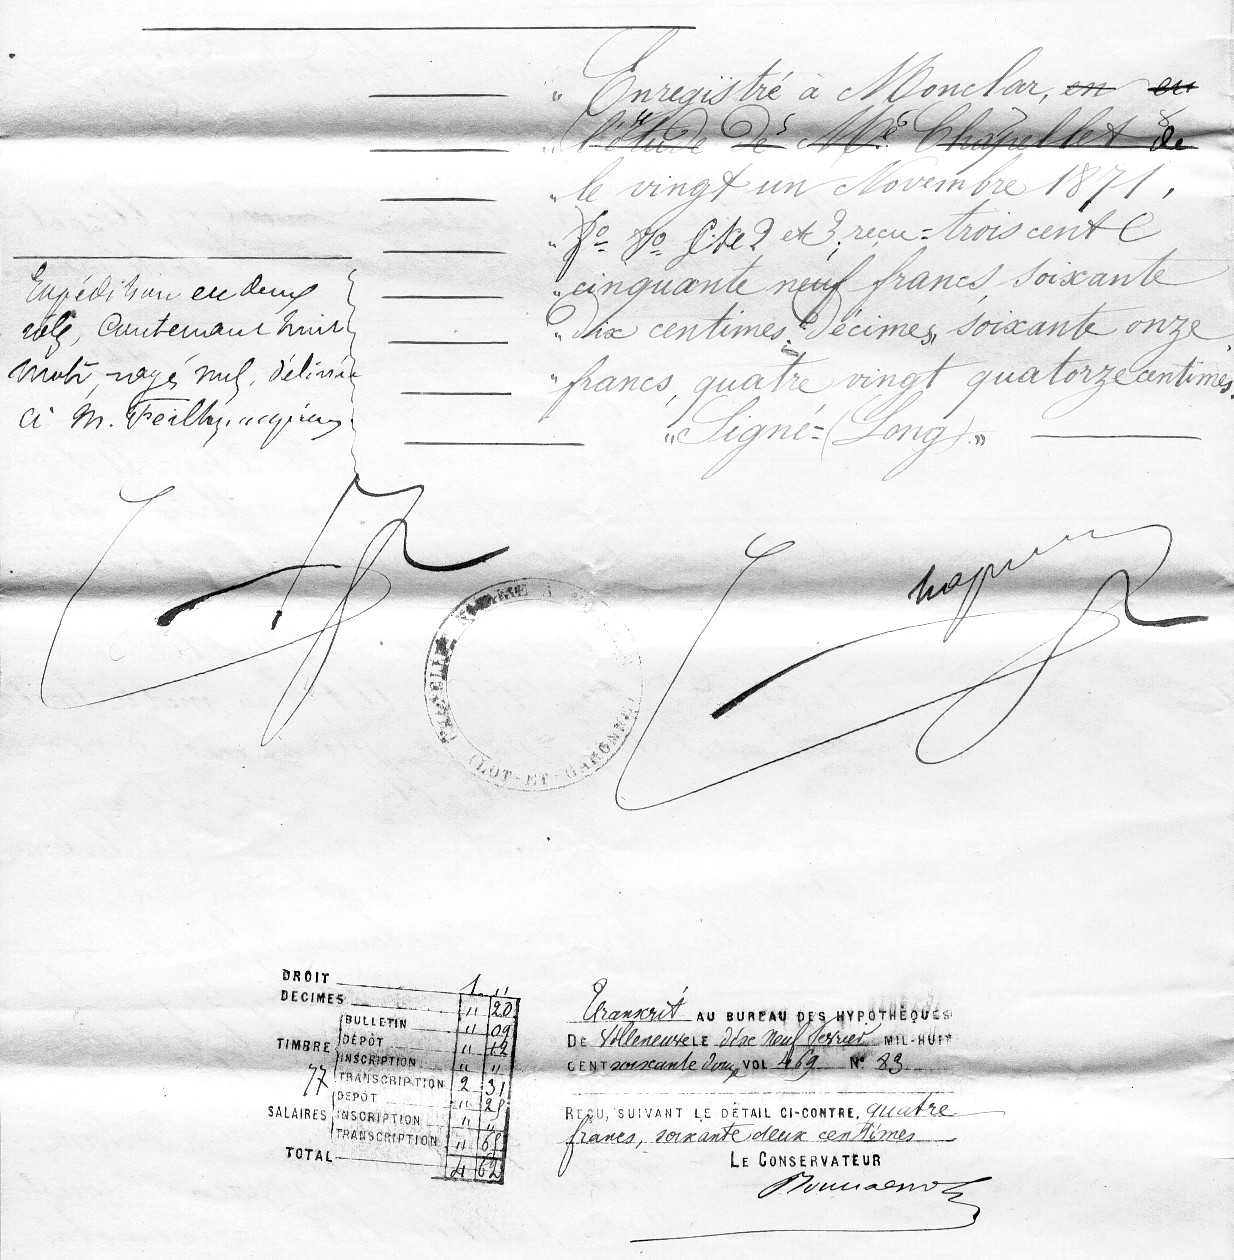 " Enregistré à Monclar, en en
" l'étude de Me Chapellet de
" le vingt un Novembre 1871,
" fo vo Cke 2 et 3, reçu = trois cent
" cinquante neuf francs, soixante
" dix centimes. Décimes, soixante onze
" francs, quatre vingt quatorze centimes.
" Signé = (Long) "
Expédition en deux
rôles, contenant huit
mots rayés nuls, délivrée
à M. Feilhe, acquéreur
LOT-ET-GARONNE
DROIT 1 "
DECIMES " 20
TIMBRE
BULLETIN " 09
DÉPÔT " 12
INSCRIPTION " "
TRANSCRIPTION 2 31
77
SALAIRES
DEPÔT " 25
INSCRIPTION " "
TRANSCRIPTION " 65
TOTAL 4 62
Transcrit AU BUREAU DES HYPOTHÈQUES
DE Villeneuve LE dix neuf février MIL-HUIT
CENT soixante douze VOL 469 No 83
REÇU, SUIVANT LE DÉTAIL CI-CONTRE, quatre
francs, soixante deux centimes
LE CONSERVATEUR